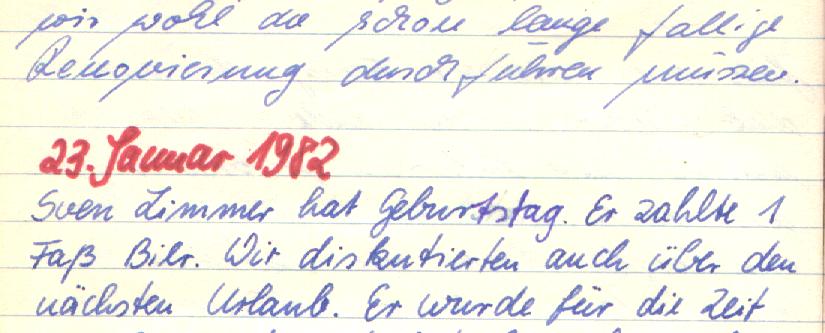 wir wohl die schon lange fällige
Renovierung durchführen müssen.
23. Januar 1982
Sven Limmer hat Geburtstag. Er zahlte 1
Faß Bier. Wir diskutierten auch über den
nächsten Urlaub. Er wurde für die Zeit